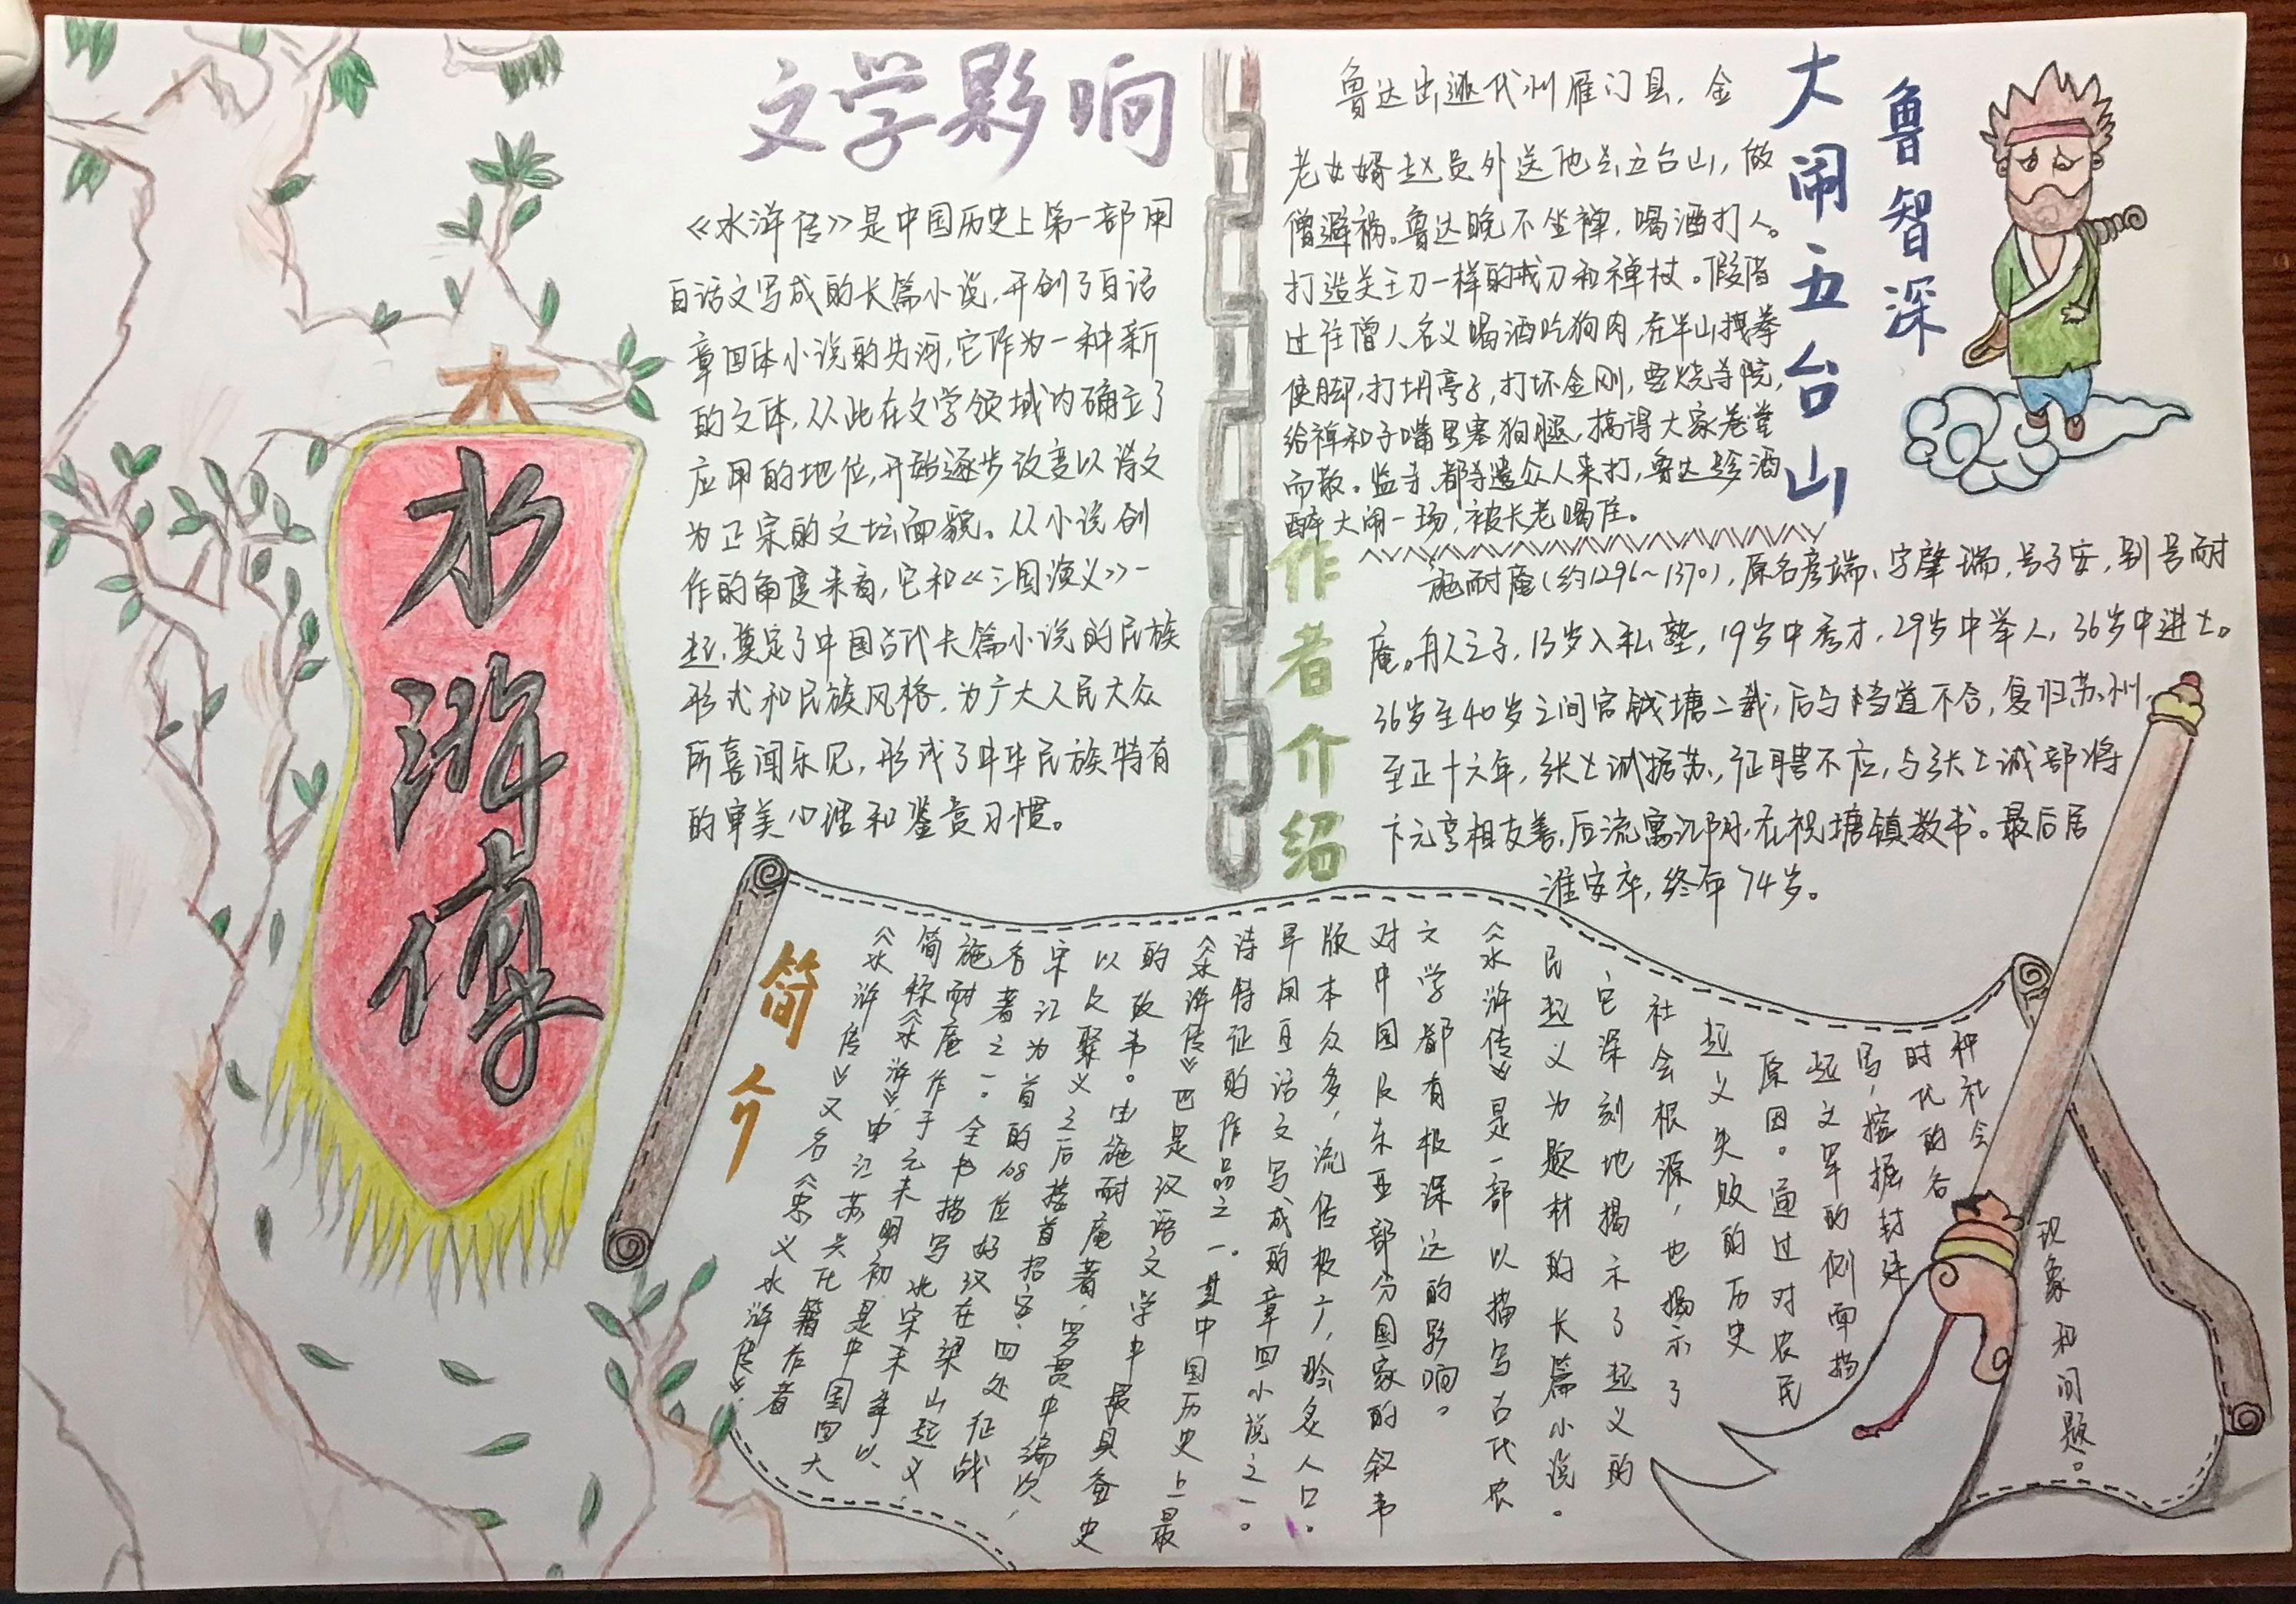 水浒传
文学影响
《水浒传》是中国历史上第一部用
白话文写成的长篇小说,开创了白话
章回体小说的先河,它作为一种新
的文体,从此在文学领域内确立了
应用的地位,开始逐步改变以诗文
为正宗的文坛面貌。从小说创
作的角度来看,它和《三国演义》一
起,奠定了中国古代长篇小说的民族
形式和民族风格,为广大人民大众
所喜闻乐见,形成了中华民族特有
的审美心理和鉴赏习惯。
鲁智深
大闹五台山
鲁达出逃代州雁门县,金
老女婿赵员外送他去五台山,做
僧避祸。鲁达晚不坐禅,喝酒打人。
打造关王刀一样的戒刀和禅杖。假借
过往僧人名义喝酒吃狗肉,在半山拽拳
使脚,打坍亭子,打坏金刚,要烧寺院,
给禅和子嘴里塞狗腿,搞得大家卷堂
而散。监寺、都寺遣众人来打,鲁达趁酒
醉大闹一场,被长老喝住。
作者介绍
施耐庵(约1296~1370),原名彦端,字肇瑞,号子安,别号耐
庵。舟人之子,13岁入私塾,19岁中秀才,29岁中举人,36岁中进士。
36岁至40岁之间官钱塘二载,后与当道不合,复归苏州。
至正十六年,张士诚据苏,征聘不应,与张士诚部将
卞元亨相友善,后流寓江阴,在祝塘镇教书。最后居
淮安卒,终年74岁。
简介
《水浒传》又名《忠义水浒传》,
简称《水浒》,中江苏兴化籍作者
施耐庵作于元末明初,是中国四大
名著之一。全书描写北宋末年以
宋江为首的108位好汉在梁山起义,
以及聚义之后接受招安、四处征战
的故事。由施耐庵著,罗贯中编次,
《水浒传》也是汉语文学中最具备史
诗特征的作品之一。是中国历史上最
早用白话文写成的章回小说之一。
版本众多,流传极广,脍炙人口。
对中国及东亚部分国家的叙事
文学都有极深远的影响。
《水浒传》是一部以描写古代农
民起义为题材的长篇小说。
它深刻地揭示了起义的
社会根源,也揭示了
起义失败的历史
原因。通过对农民
起义军的侧面描
写,挖掘封建
时代的各
种社会
现象和问题。